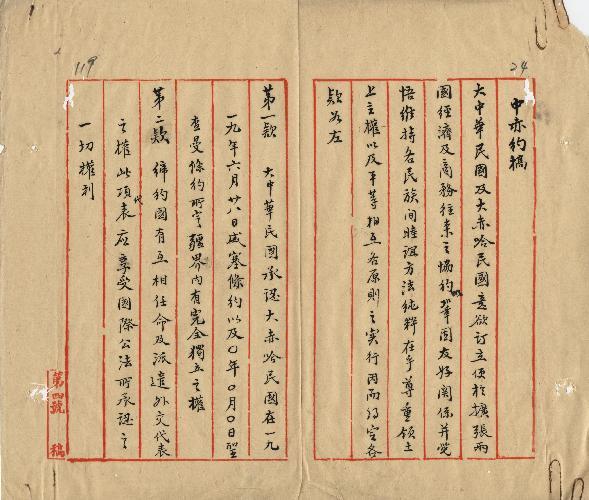 24
中赤約稿
大中華民國及大赤哈民國意欲訂立便於擴張兩
國經濟及商務往来之協約以鞏固友好關係并覺
悟維持各民族間睦誼方法純粹在乎尊重領土
上主權以及平等相互各原則之實行因而約定各
款如左
119
第一款 大中華民國承認大赤哈民國在一九
一九年六月廿八日威塞條約以及〇年〇月〇日聖
查曼條約所定疆界内有完全獨立之權
第二款 締約國有互相任命及派遣外交代表
之權此項代表應享受國際公法所承認之
一切權利
第四號 稿